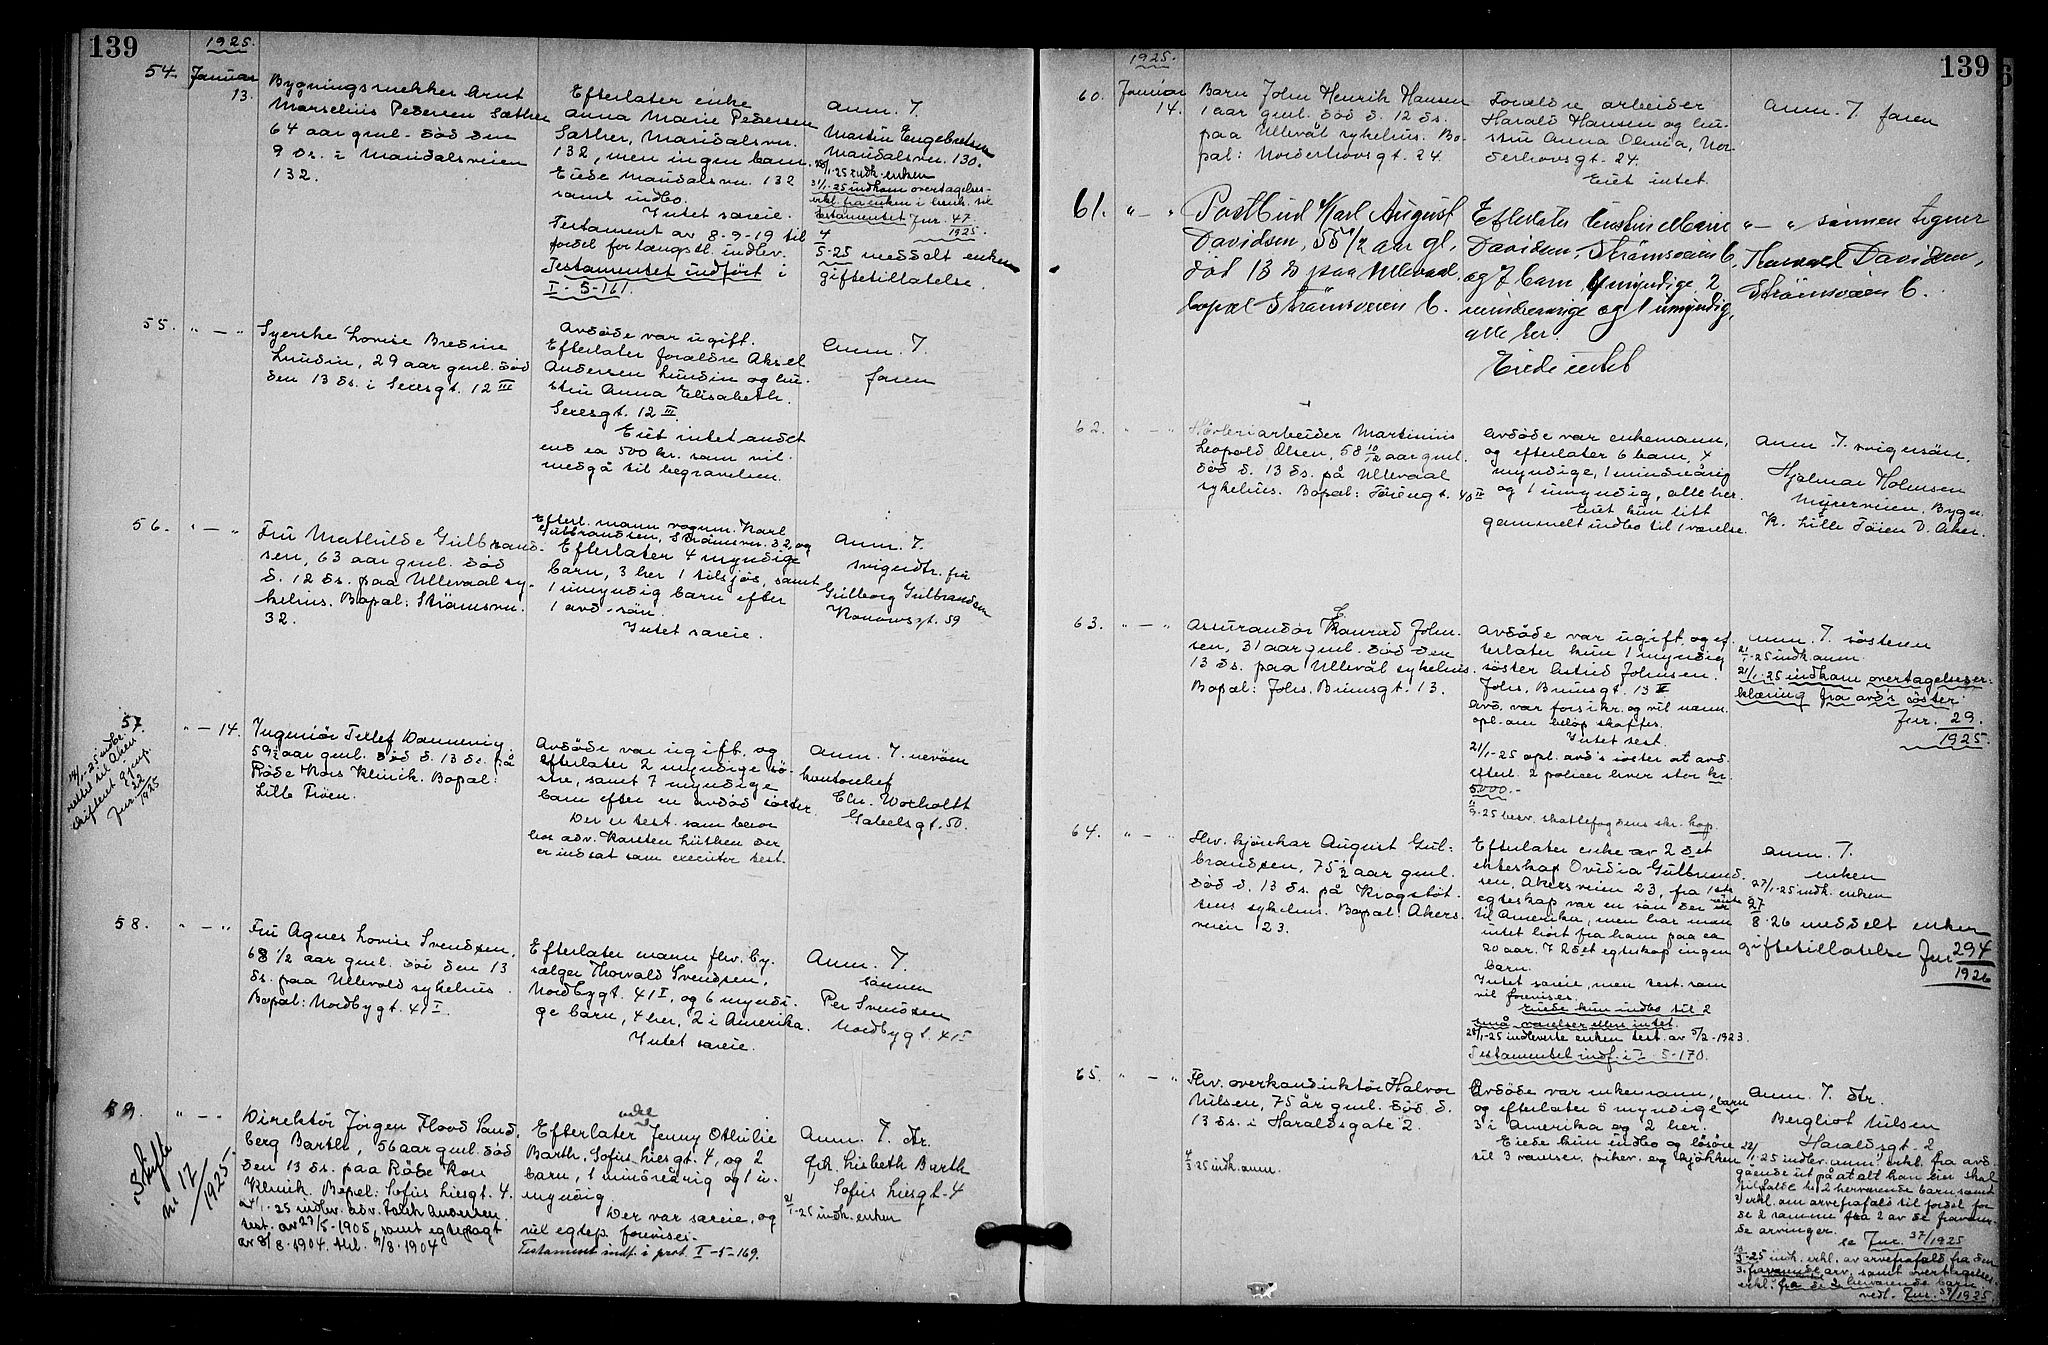 139
1925.
54. Januar
13.
Bygningssnekker Arnt
Marselius Pedersen Sæther
64 aar gml. død den
9 ds. i Maridalsveien
132.
Efterlater enke
Anna Marie Pedersen
Sæther, Maridalsvn.
132, men ingen barn.
Eiede Maridalsvn. 132
samt indbo.
Intet særeie.
Testament av 8-9-19 til
fordel for længstl. indlev.
Testamentet indført i
I-5-161.
Anm. T.
Martin Engebretsen
Maridalsvn. 130.
/1-25 indk. enken
31/1-25 indkom overtagelses-
erkl. fra enken i henh. til
testamentet Jnr. 47
1925.
4/5-25 meddelt enken
giftetillatelse.
55. " — "
Syerske Lovise Bredine
Lundin, 29 aar gml. død
den 13 ds. i Seresgt. 12 III
Avdøde var ugift.
Efterlater forældre Aksel
Andersen Lundin og hu-
stru Anna Elisabeth.
Seresgt. 12 III.
Eiet intet andet
end ca 500 kr. som vil
medgå til begravelsen.
Anm. T.
faren
56. " — "
Fru Mathilde Gulbrand-
sen, 63 aar gml. død
d. 12 ds. paa Ullevaal sy-
kehus. Bopæl: Strømsvn.
32.
Efterl. mann vognm. Karl
Gulbrandsen, Strømsvn. 32, og
Efterlater 4 myndige
barn, 3 her 1 tilsjøs, samt
1 umyndig barn efter
1 avd. søn.
Intet særeie.
Anm. T.
svigerdtr. fru
Gulborg Gulbrandsen
Konowsgt. 59
57 " — 14.
14/1-25 indber.
sendt til Aker
skifterett
Jnr. 22
1925
Ingeniør Detlef Dannevig
59½ aar gml. død d. 13 ds. på
Røde Kors Klinik. Bopæl:
Lille Frøen.
Avdøde var ugift, og
efterlater 2 myndige sø-
stre, samt 7 myndige
barn efter en avdød søster.
Der er test. som beror
hos adv. Karsten Lüthen der
er indsat som executor test.
Anm. T. nevøen
kontorchef
Chr. Worholtt
Gabelsgt. 50.
58. " — "
Fru Agnes Lovise Svendsen,
68 1/2 aar gml. død den 13
ds. paa Ullevold sykehus.
Bopæl: Nordbygt. 41 I.
Efterlater mann fhv. by-
selger Thorvald Svendsen,
Nordbygt. 41 I, og 6 myndi-
ge barn, 4 her, 2 i Amerika.
Intet særeie.
Anm. T.
sønnen
Per Svendsen
Nordbygt. 41 I
59. " — "
Skifte
nr. 12/1925.
Direktør Jørgen Flood Sand-
berg Barth, 56 aar gml. død
den 13 ds. paa Røde Kors
Klinik. Bopæl: Sofus Liesgt. 4.
24/1-25 indlev. adv. Andersen
test. av 27/5-1905, samt egtepagt
av 8/8-1904. tgl. 9/8-1904
Efterlater enke Jenny Othilie
Barth, Sofus Liesgt. 4, og 2
barn, 1 mindreårig og 1 u-
myndig.
Der var særeie, og
vil egtep. forevises.
Testament indf. i prot. I-5-169.
Anm. T. dtr.
frk. Lisbeth Barth
Sofus Liesgt. 4
21/1-25 indk. enken
139
1925.
60. Januar
14.
Barn John Henrik Hansen
1 aar gml. død d. 12 ds.
paa Ullevål sykehus. Bo-
pæl: Norderhovsgt. 24.
Forældre arbeider
Harald Hansen og hu-
stru Anna Olivia, Nor-
derhovsgt. 24.
Eiet intet.
Anm. T. faren
61. " — "
Postbud Karl August
Davidsen, 55 1/2 aar gl,
død 13 ds paa Ullevaal.
bopæl Strømsveien 6.
Efterlater hustru Marie
Davidsen, Strømsveien 6,
og 7 barn, 4 myndige, 2
mindreaarige og 1 umyndig,
alle her.
Eiede intet
" — " sønnen Ragnar
Davidsen,
Strømsveien 6.
62. " — "
Høvleriarbeider Martinius
Leopold Olsen, 58 10/12 aar gml.
død d. 13 ds. på Ullevaal
sykehus. Bopæl: Tøiengt. 40 II
Avdøde var enkemann,
og efterlater 6 barn, 4
myndige, 1 mindreårig
og 1 umyndig, alle her.
Eiet kun litt
gammelt indbo til 1 værelse.
Anm. T. svigersøn.
Hjalmar Holmsen
Myrerveien, Bygn.
K. Lille Tøien D. Aker.
63. " — "
Assurandør E Konrad John-
sen, 31 aar gml. død den
13 ds. paa Ullevål sykehus.
Bopæl: Johs. Brunsgt. 13.
Avdøde var ugift og ef-
terlater kun 1 myndig
søster Astrid Johnsen.
Johs. Brunsgt. 13 II
Avd. var forsikr. og vil nærm.
opl. om beløp skaffes.
Intet test.
21/1-25 opl. avd's søster at avd.
efterl. 2 policer hver stor kr.
5000.-
/9-25 besv. skattefogdens skr. kop.
Anm. T. søsteren
21/1-25 indk. anm.
21/1-25 indkom overtagelseser-
klæring fra avd's søster.
Jnr. 29.
1925.
64. " — "
Fhv. kjørekar August Gul-
brandsen, 75½ aar gml.
død d. 13 ds. på Kragstøt-
tens sykehus. Bopæl: Akers-
veien 23.
Efterlater enke av 2det
ekteskap Ovidia Gulbrand-
sen, Akersveien 23, fra 1ste
egteskap var en søn der reiste
til Amerika, men har man
intet hørt fra ham paa ca
20 aar. I 2det egteskap ingen
barn.
Intet særeie, men test. som
vil forevises.
Eiede kun indbo til 2
små værelser ellers intet.
28/1-25 indleverte enken test. av 5/2-1923.
Testamentet indf. i I-5-170.
Anm. T.
enken
27/1-25 indk. enken
27/8-26 meddelt enken
giftetillatelse Jnr 294
1926
65. " — "
Fhv. overkonduktør Halvor
Nilsen, 75 år gml. død d.
13 ds. i Haraldsgate 2.
4/3-25 indk. anm.
Avdøde var enkemann,
og efterlater 5 myndige barn
3 i Amerika og 2 her.
Eiede kun indbo og løsøre
til 3 værelser, pikev. og kjøkken
Anm. T. dtr.
Bergliot Nilsen
Haraldsgt. 2
22/1-25 indlev. anm. erkl. fra avd.
gående ut på at alt han eier skal
tilfalde hs. 2 herværende barn samt
3 erkl. om arvefrafald til fordel for
de 2 samme fra 2 av de fraværen-
de arvinger.
se Jnr. 37/1925
/3-25 indk. erkl. av arvefrafald fra den
3. fraværende arv. samt overtagelses-
erkl. fra de 2 herværende barn
vedl. Jnr. 37/1925.